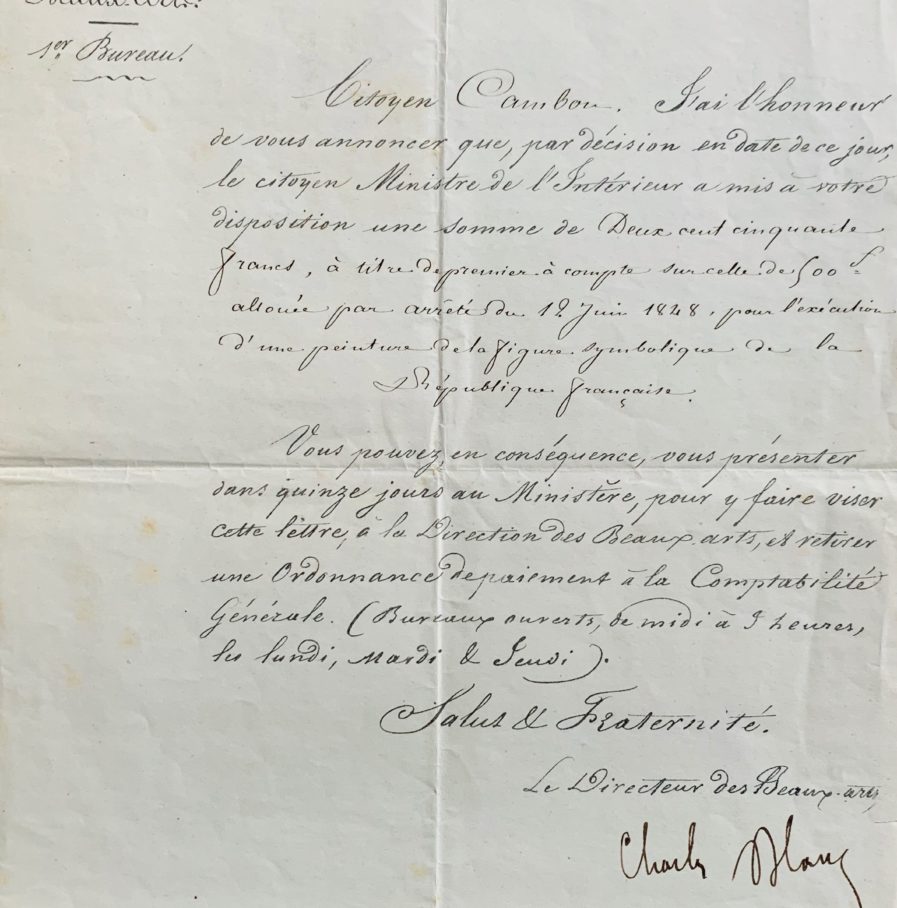 Beaux-Arts.
1er Bureau.
Citoyen Cambon. J'ai l'honneur
de vous annoncer que, par décision en date de ce jour,
le citoyen Ministre de l'Intérieur a mis à votre
disposition une somme de Deux cent cinquante
francs, à titre de premier à compte sur celle de 500 f.
allouée par arrêté du 12 Juin 1848, pour l'exécution
d'une peinture de la figure symbolique de la
République française.
Vous pouvez, en conséquence, vous présenter
dans quinze jours au Ministère, pour y faire viser
cette lettre, à la Direction des Beaux-arts, et retirer
une Ordonnance de paiement à la Comptabilité
Générale. (Bureaux ouverts, de midi à 3 heures,
les lundi, Mardi & Jeudi).
Salut & Fraternité.
Le Directeur des Beaux-arts,
Charles Blanc